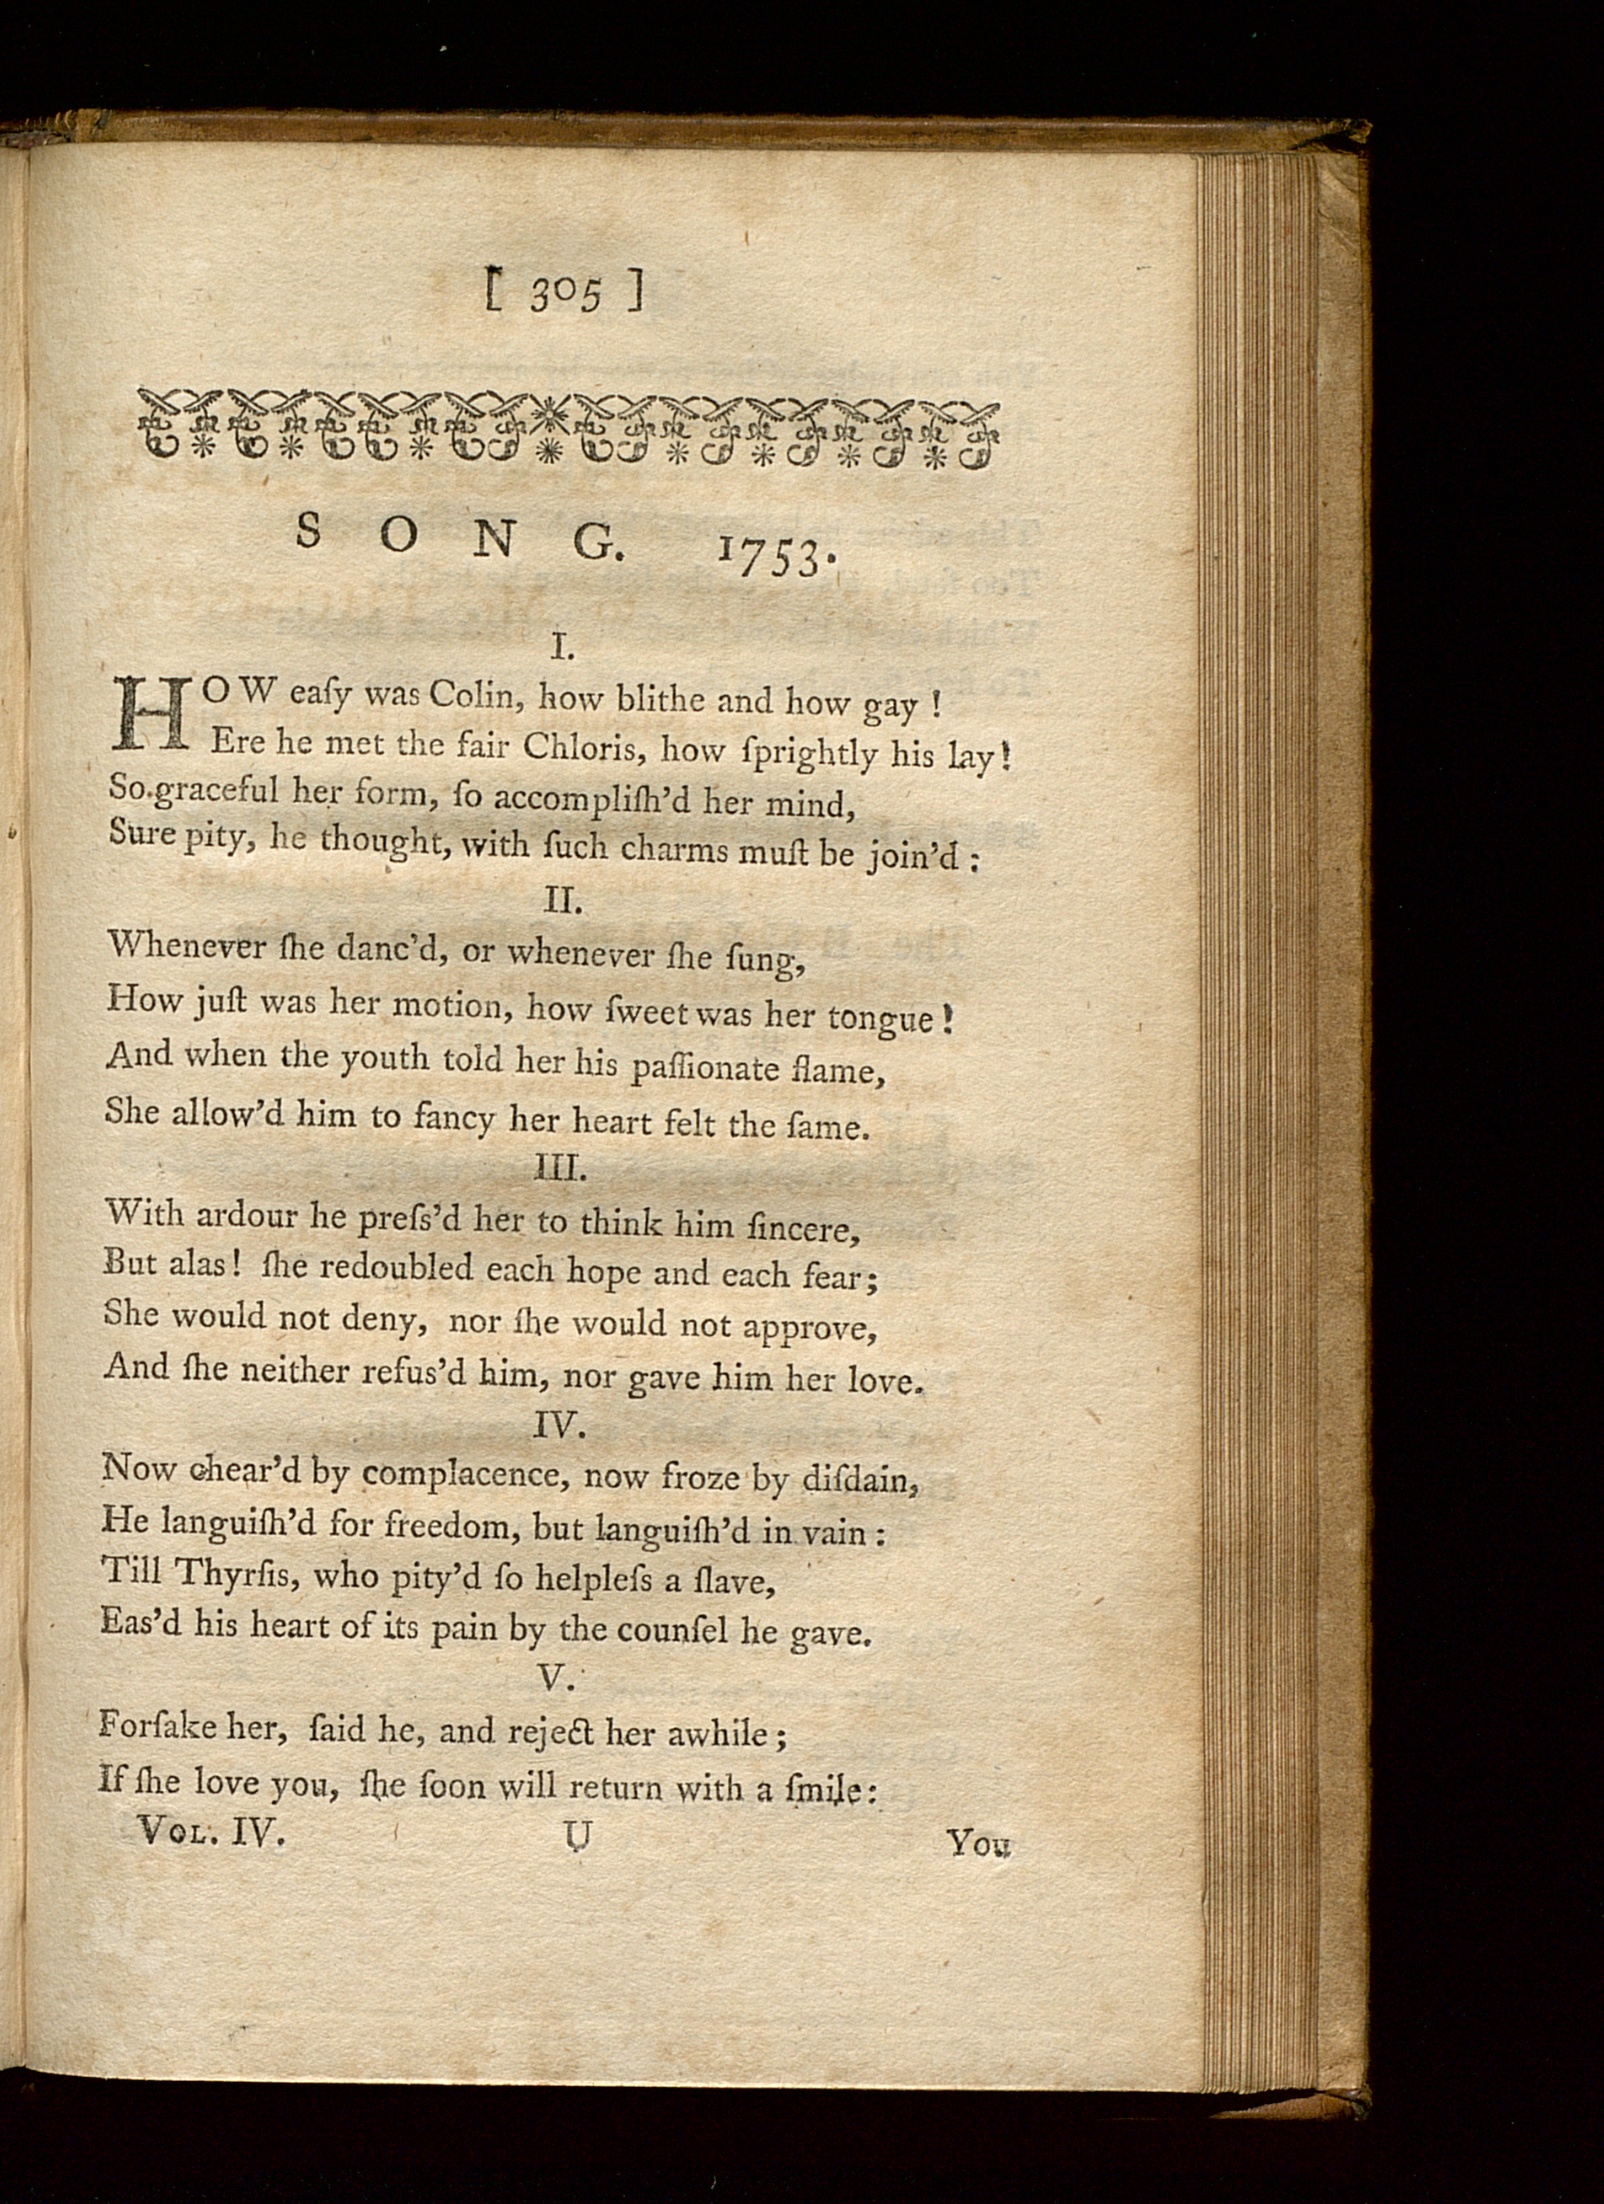 [ 305 ]
SONG. 1753.
I.
HOW eaſy was Colin, how blithe and how gay !
Ere he met the fair Chloris, how ſprightly his lay!
So graceful her form, ſo accompliſh'd her mind,
Sure pity, he thought, with ſuch charms muſt be join'd :
II.
Whenever ſhe danc'd, or whenever ſhe ſung,
How juſt was her motion, how ſweet was her tongue!
And when the youth told her his paſſionate flame,
She allow'd him to fancy her heart felt the ſame.
III.
With ardour he preſs'd her to think him ſincere,
But alas! ſhe redoubled each hope and each fear;
She would not deny, nor ſhe would not approve,
And ſhe neither refus'd him, nor gave him her love.
IV.
Now chear'd by complacence, now froze by diſdain,
He languiſh'd for freedom, but languiſh'd in vain :
Till Thyrſis, who pity'd ſo helpleſs a ſlave,
Eas'd his heart of its pain by the counſel he gave.
V.
Forſake her, ſaid he, and reject her awhile;
If ſhe love you, ſhe ſoon will return with a ſmile:
VOL. IV. U You